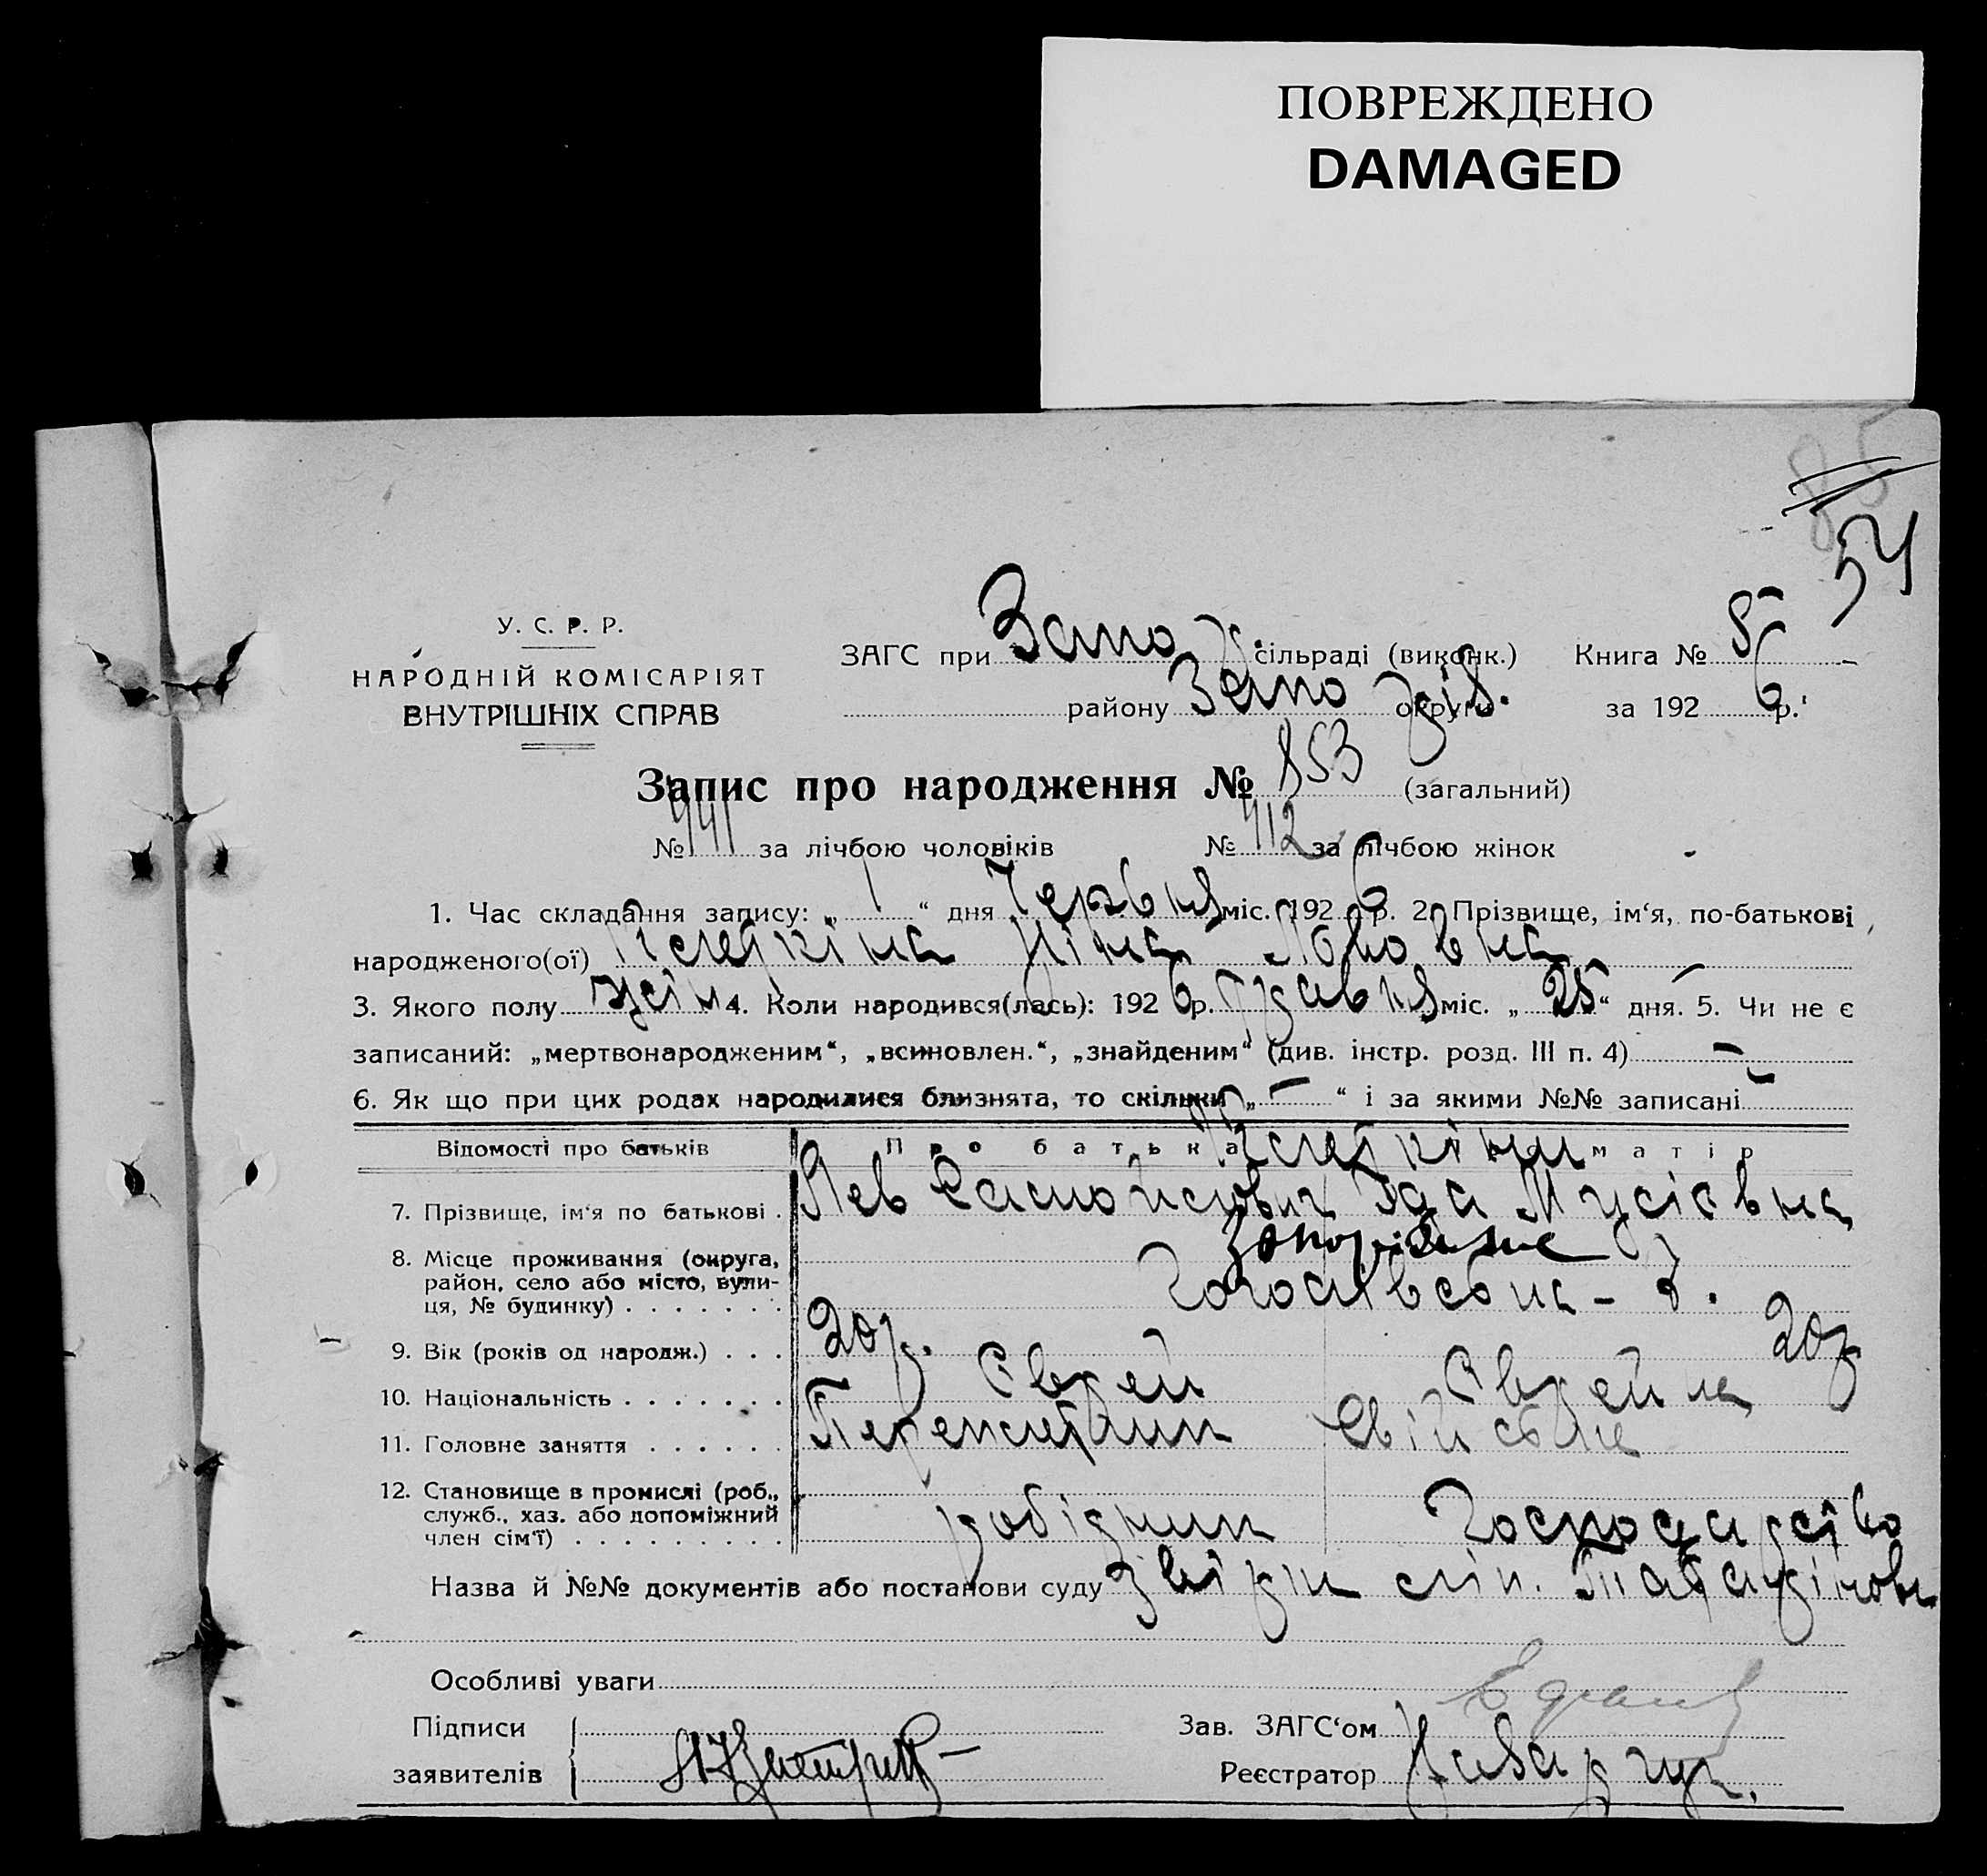 ПОВРЕЖДЕНО
DAMAGED
54
У. С. Р. Р.
НАРОДНІЙ КОМІСАРІЯТ
ВНУТРІШНІХ СПРАВ
ЗАГС при Запо сільраді (виконк.) Книга № 5
району Запо округи за 1926 р.
Запис про народження № 853 (загальний)
№ 441 за лічбою чоловіків № 412 за лічбою жінок
1. Час складання запису: „ 1 “ дня Червня міс. 1926 р. 2. Прізвище, ім‘я, по-батькові
народженого(ої) Ніна Львовна
3. Якого полу жін 4. Коли народився(лась): 1926 р. травня міс. „ 25 “ дня. 5. Чи не є
записаний: „мертвонародженим“, „всиновлен.“, „знайденим“ (див. інстр. розд. III п. 4) –
6. Як що при цих родах народилися близнята, то скільки „ – “ і за якими №№ записані –
Відомості про батьків Про батька матір
7. Прізвище, ім‘я по батькові . Лев Самойлович Іда Мусіївна
8. Місце проживання (округа, Запоріжжє
район, село або місто, вули-
ця, № будинку) . . . . . . .
9. Вік (років од народж.) . . . 20 р. 20 р
10. Національність . . . . . . . Єврей Єврейка
11. Головне заняття . . . . . .
12. Становище в промислі (роб.,
служб., хаз. або допоміжний робідник Господарство
член сім‘ї) . . . . . . . . .
Назва й №№ документів або постанови суду
Особливі уваги
Підписи Зав. ЗАГС‘ом
заявителів Реєстратор